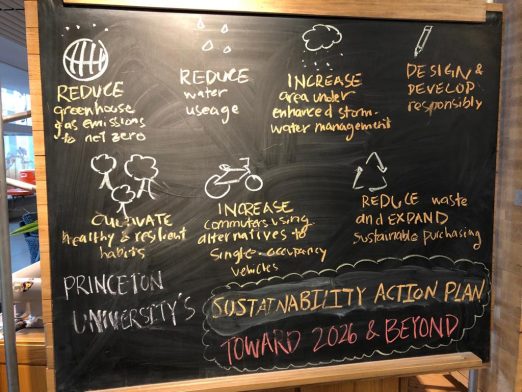 REDUCE
greenhouse
gas emissions
to net zero
REDUCE
water
useage
INCREASE
area under
enhanced storm-
water management
DESIGN &
DEVELOP
responsibly
CULTIVATE
healthy & resilient
habits
INCREASE
commuters using
alternatives to
single-occupancy
vehicles
REDUCE waste
and EXPAND
sustainable purchasing
PRINCETON
UNIVERSITY'S
SUSTAINABILITY ACTION PLAN
TOWARD 2026 & BEYOND